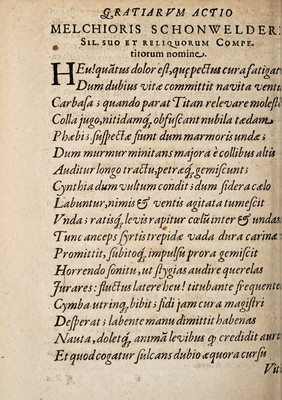 GRATIARVM ACTIO
MELCHIORIS SCHONWELDER:
SIL. SUO ET RELIQUORUM COMPE-
titorum nomine.
HEu! quãtus dolor est, quę pectus cura fatigat
Dum dubius vitæ committit navita ventu
Carbasa; quando parat Titan relevare molesti
Colla jugo, nitidamq́, obfuscant nubila tædam
Phæbi; suspectæ fiunt dum marmoris undæ;
Dum murmur minitans major è collibus altis
Auditur longo tractu, petræq́, gemiscunt;
Cynthia dum vultum condit; dum sidera cælo
Labuntur, nimis & ventis agitata tumescit
Vnda; ratisq́, levis rapitur cœlũ inter & undas
Tunc anceps syrtis trepidæ vada dura carinæ
Promittit, subitoq́, impulsu prora gemiscit
Horrendo sonitu, ut stygias audire querelas
Jurares: fluctus latere heu! titubante frequente
Cymba utrinq́, bibit; fidi jam cura magistri
Desperat; labente manu dimittit habenas
Nauta, doletq́, animã levibus q̃ credidit auri
Et quod cogatur sulcans dubio æquora cursu
Viti